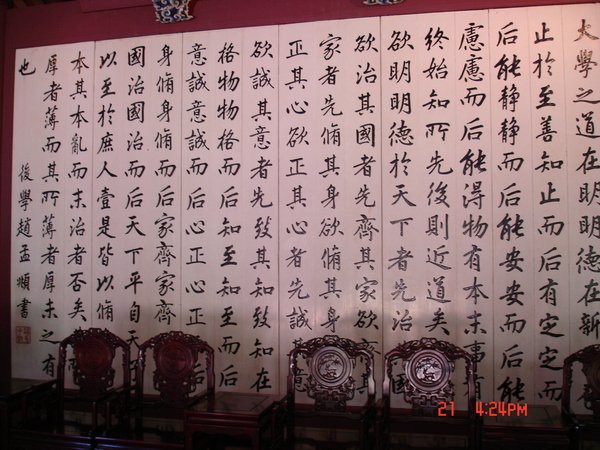 大學之道在明明德在新
止於至善知止而后有定定而
后能静静而后能安安而后能
慮慮而后能得物有本末事有
終始知所先後則近道矣
欲明明德於天下者先治其國
欲治其國者先齊其家欲齊其
家者先脩其身欲脩其身
正其心欲正其心者先誠其意
欲誠其意者先致其知致知在
格物物格而后知至知至而后
意誠意誠而后心正心正
身脩身脩而后家齊家齊
國治國治而后天下平自天子
以至於庶人壹是皆以脩
本其本亂而末治者否矣其
厚者薄而其所薄者厚未之有
也
後學趙孟頫書
21 4:24PM